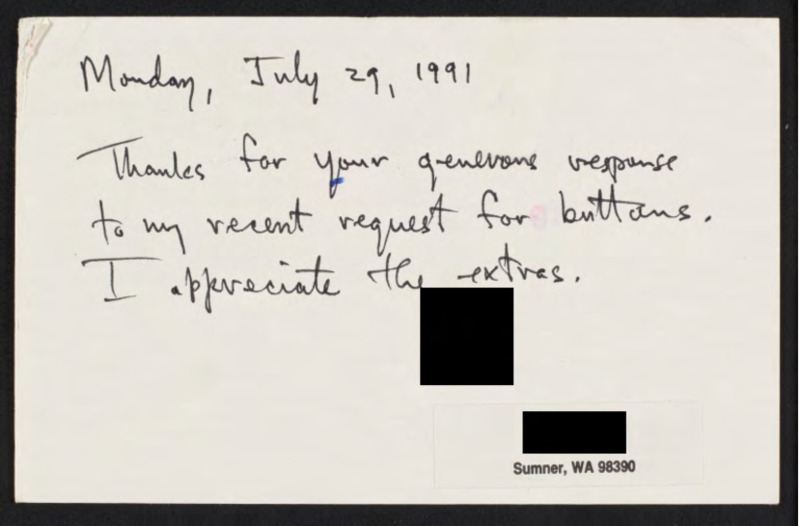 Monday, July 29, 1991
Thanks for your generous response
to my recent request for buttons.
I appreciate the extras.
Sumner, WA 98390